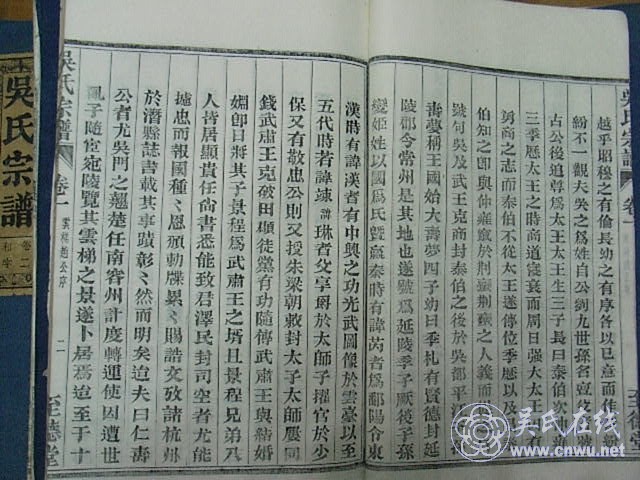 越乎昭穆之有倫長幼之有序各以已意而作紛
紛不一觀夫吳之爲姓自公劉九世孫名亶父號
古公後追尊爲太王太王生三子長曰泰伯次
三季歷太王之時商道寖衰而周日强大太王
剪商之志而泰伯不從太王遂傳位季歷以及
伯知之卽與仲雍竄於荆蠻荆蠻之人義而
號句吳及武王克商封泰伯之後於吳都平江
壽夢稱王國始大壽夢四子幼曰季札有賢德封延
陵鄀今常州是其地也遂號爲延陵季子厥後子孫
變姬姓以國爲氏曁嬴秦時有諱芮者爲鄱陽令東
漢時有諱漢者有中興之功光武圖像於雲臺以至
五代時若諱竦諱琳者父享爵於太師子擢官於少
保又有敬忠公則又授朱梁朝敕封太子太師屢同
錢武肅王克破田頵徒黨有功隨傳武肅王與結婚
姻卽目將其子景程爲武肅王之壻且景程兄弟乃
人皆居顯責任尙書悉能致君澤民封司空者尤能
攄忠而報國種〻恩頒勅牒累〻賜誥文攷諸杭州
於潛縣誌書載其事蹟彰〻然而明矣迨夫曰仁壽
公者尤吳門之翹楚任南容州計度轉運使因遭世
亂子隨宦宛陵覽其雲梯之景遂卜居焉迨至于十
吳氏宗譜
卷一
雲梯趙公序
二
至德堂
吳氏宗譜
卷二
和字
吳氏在线
www.cnwu.net